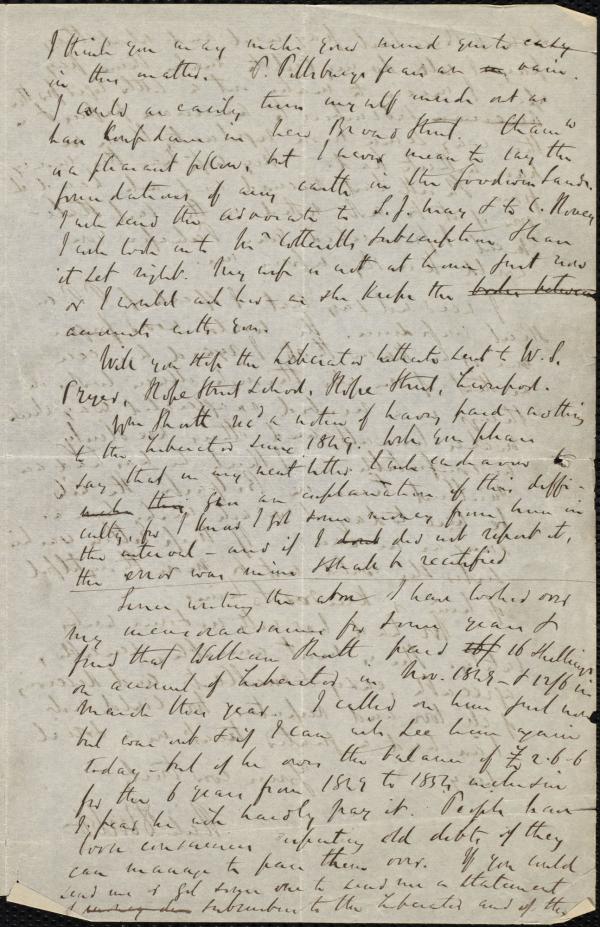 I think you may make your mind quite easy
in this matter. P. Pillsbury's fears are vain.
I could as easily turn myself inside out as
have confidence in New Broad Street. Cham
is a pleasant fellow, but I never mean to lay the
foundations of any castle in the Goodwin Sands.
I will send the Advocate to S. J. May & to C. Hovey
I will look into Mrs Cotterells subscription & have
it set right. My wife is not at home just now
or I would ask her as she keeps the
accounts with you.
Will you stop the Liberator hitherto sent to W. S.
Pryer, Hope Street School, Hope Street, Liverpool.
Wm Shortt rec'd a notice of having paid nothing
to the Liberator since 1849. Will you please
say that in my next letter I will endeavour to
give an explanation of this diffi-
culty, for I know I got some money from him in
the interval - and if I did not report it,
the error was mine & shall be rectified
Since writing the above I have looked over
my memorandums for some years &
find that William Shortt paid 16 shillings
on account of Liberator in Nov. 1849 - & 12/6 in
March this year. I called on him just now
but was out & if I can will see him again
today - but if he owes the balance of £2-6-6
for the 6 years from 1849 to 1854 inclusive
I fear he will hardly pay it. People have
consciences old debts if they
can manage to pass them over. If you could
send me or get some one to send me a statement
subscribers to the Liberator and of the